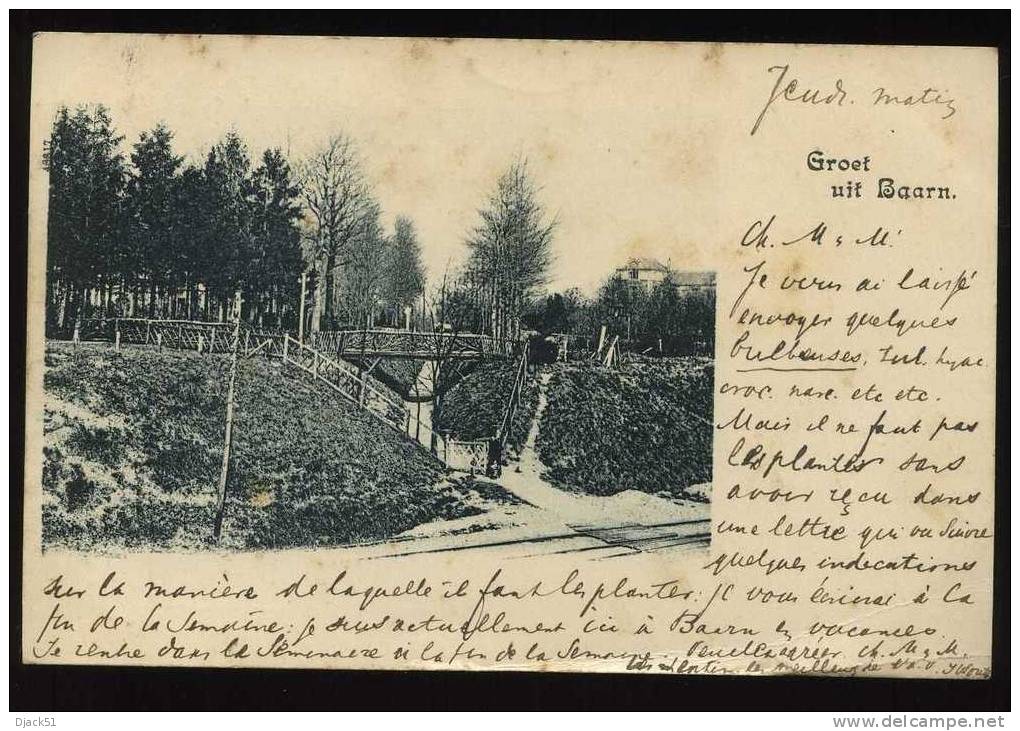 Jeudi matin
Groet
uit Baarn.
Ch. M & M.
Je vous ai laissé
envoyer quelques
bulbeuses, tul. hyac.
croc. narc. etc etc.
Mais il ne faut pas
les planter sans
avoir reçu dans
une lettre qui va suivre
quelques indications
sur la manière de laquelle il faut les planter. Je vous écrirai à la
fin de la Semaine. je suis actuellement ici à Baarn en vacances.
Je rentre dans la Séminaire à la fin de la Semaine. Veuillez agréer, Ch. M & M.
le meilleur de
16817
Djack51
www.delcampe.net